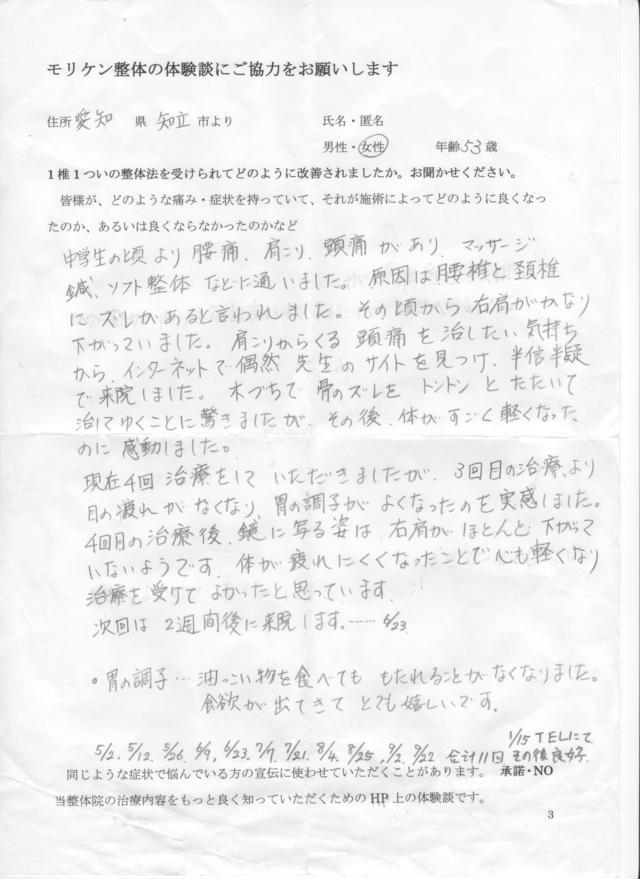 モリケン整体の体験談にご協力をお願いします
住所 愛知 県 知立 市より 氏名・匿名
男性・女性 年齢 53 歳
1椎1つい の整体法を受けられてどのように改善されましたか。お聞かせください。
皆様が、どのような痛み・症状を持っていて、それが施術によってどのように良くなっ
たのか、あるいは良くならなかったのかなど
中学生の頃より 腰痛、肩こり、頭痛 があり、マッサージ
鍼、ソフト整体 などに通いました。原因は腰椎と頚椎
に ズレがあると言われました。その頃から右肩がかなり
下がっていました。肩こりからくる 頭痛 を治したい気持ち
から、インターネットで偶然 先生の サイトを見つけ、半信半疑
で来院しました。木づちで 骨のズレを トントン とたたいて
治してゆくことに驚きましたが、その後、体がすごく軽くなった
のに 感動しました。
現在4回 治療をして いただきましたが、3回目の治療より
目の疲れがなくなり、胃の調子が よくなったのを実感しました。
4回目の治療後、鏡に写る姿は、右肩が ほとんど下がって
いないようです。体が疲れにくくなったことで心も軽くなり
治療を受けて よかったと思っています。
次回は 2週間後に来院します。…… 6/23
・胃の調子… 油っこい物を食べても もたれることがなくなりました。
食欲が出てきて とても嬉しいです。
1/15 TELにて
5/2. 5/12. 5/26. 6/9. 6/23. 7/7. 7/21. 8/4. 8/25. 9/2. 9/22 合計11回 その後良好
同じような症状で悩んでいる方の宣伝に使わせていただくことがあります。 承諾・NO
当整体院の治療内容をもっと良く知っていただくための HP 上の体験談です。
3